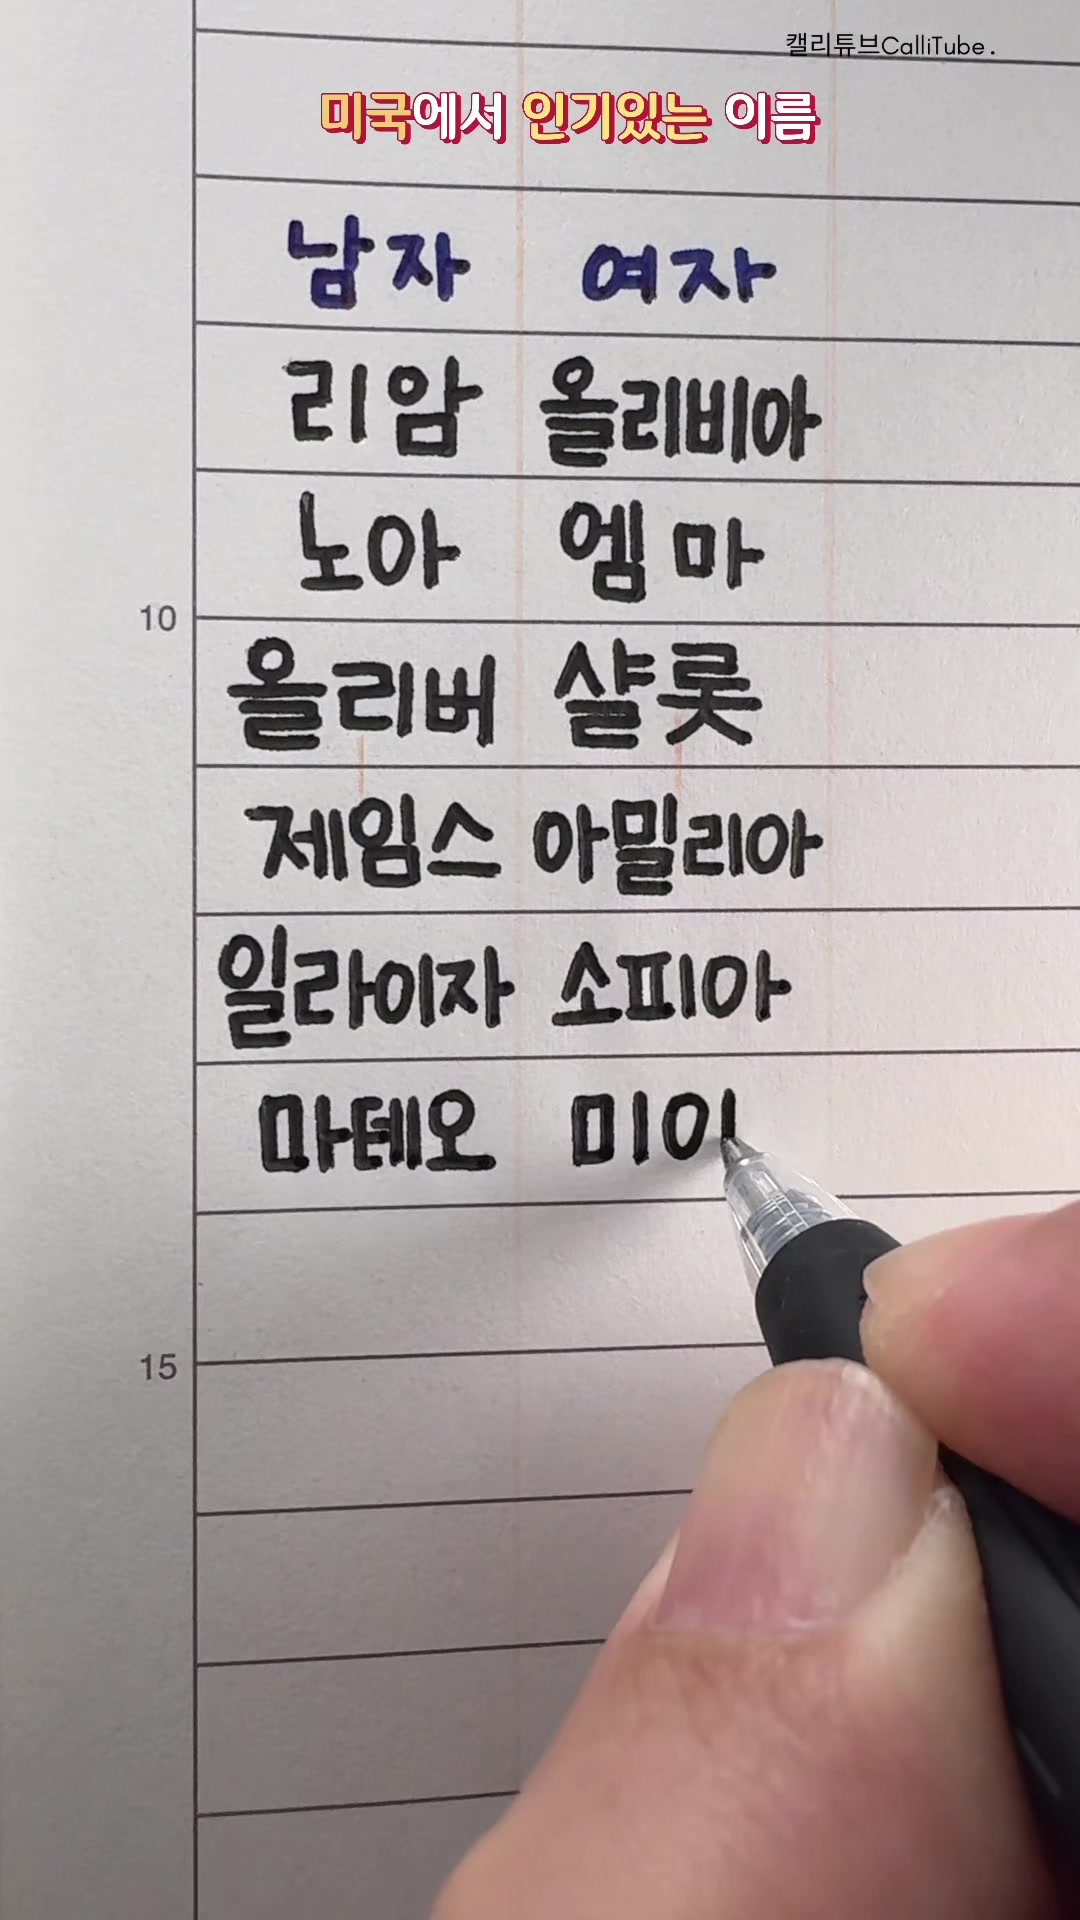 캘리튜브CalliTube.
미국에서 인기있는 이름
남자 여자
리암 올리비아
노아 엠마
10
올리버 샬롯
제임스 아밀리아
일라이자 소피아
마테오 미이
15